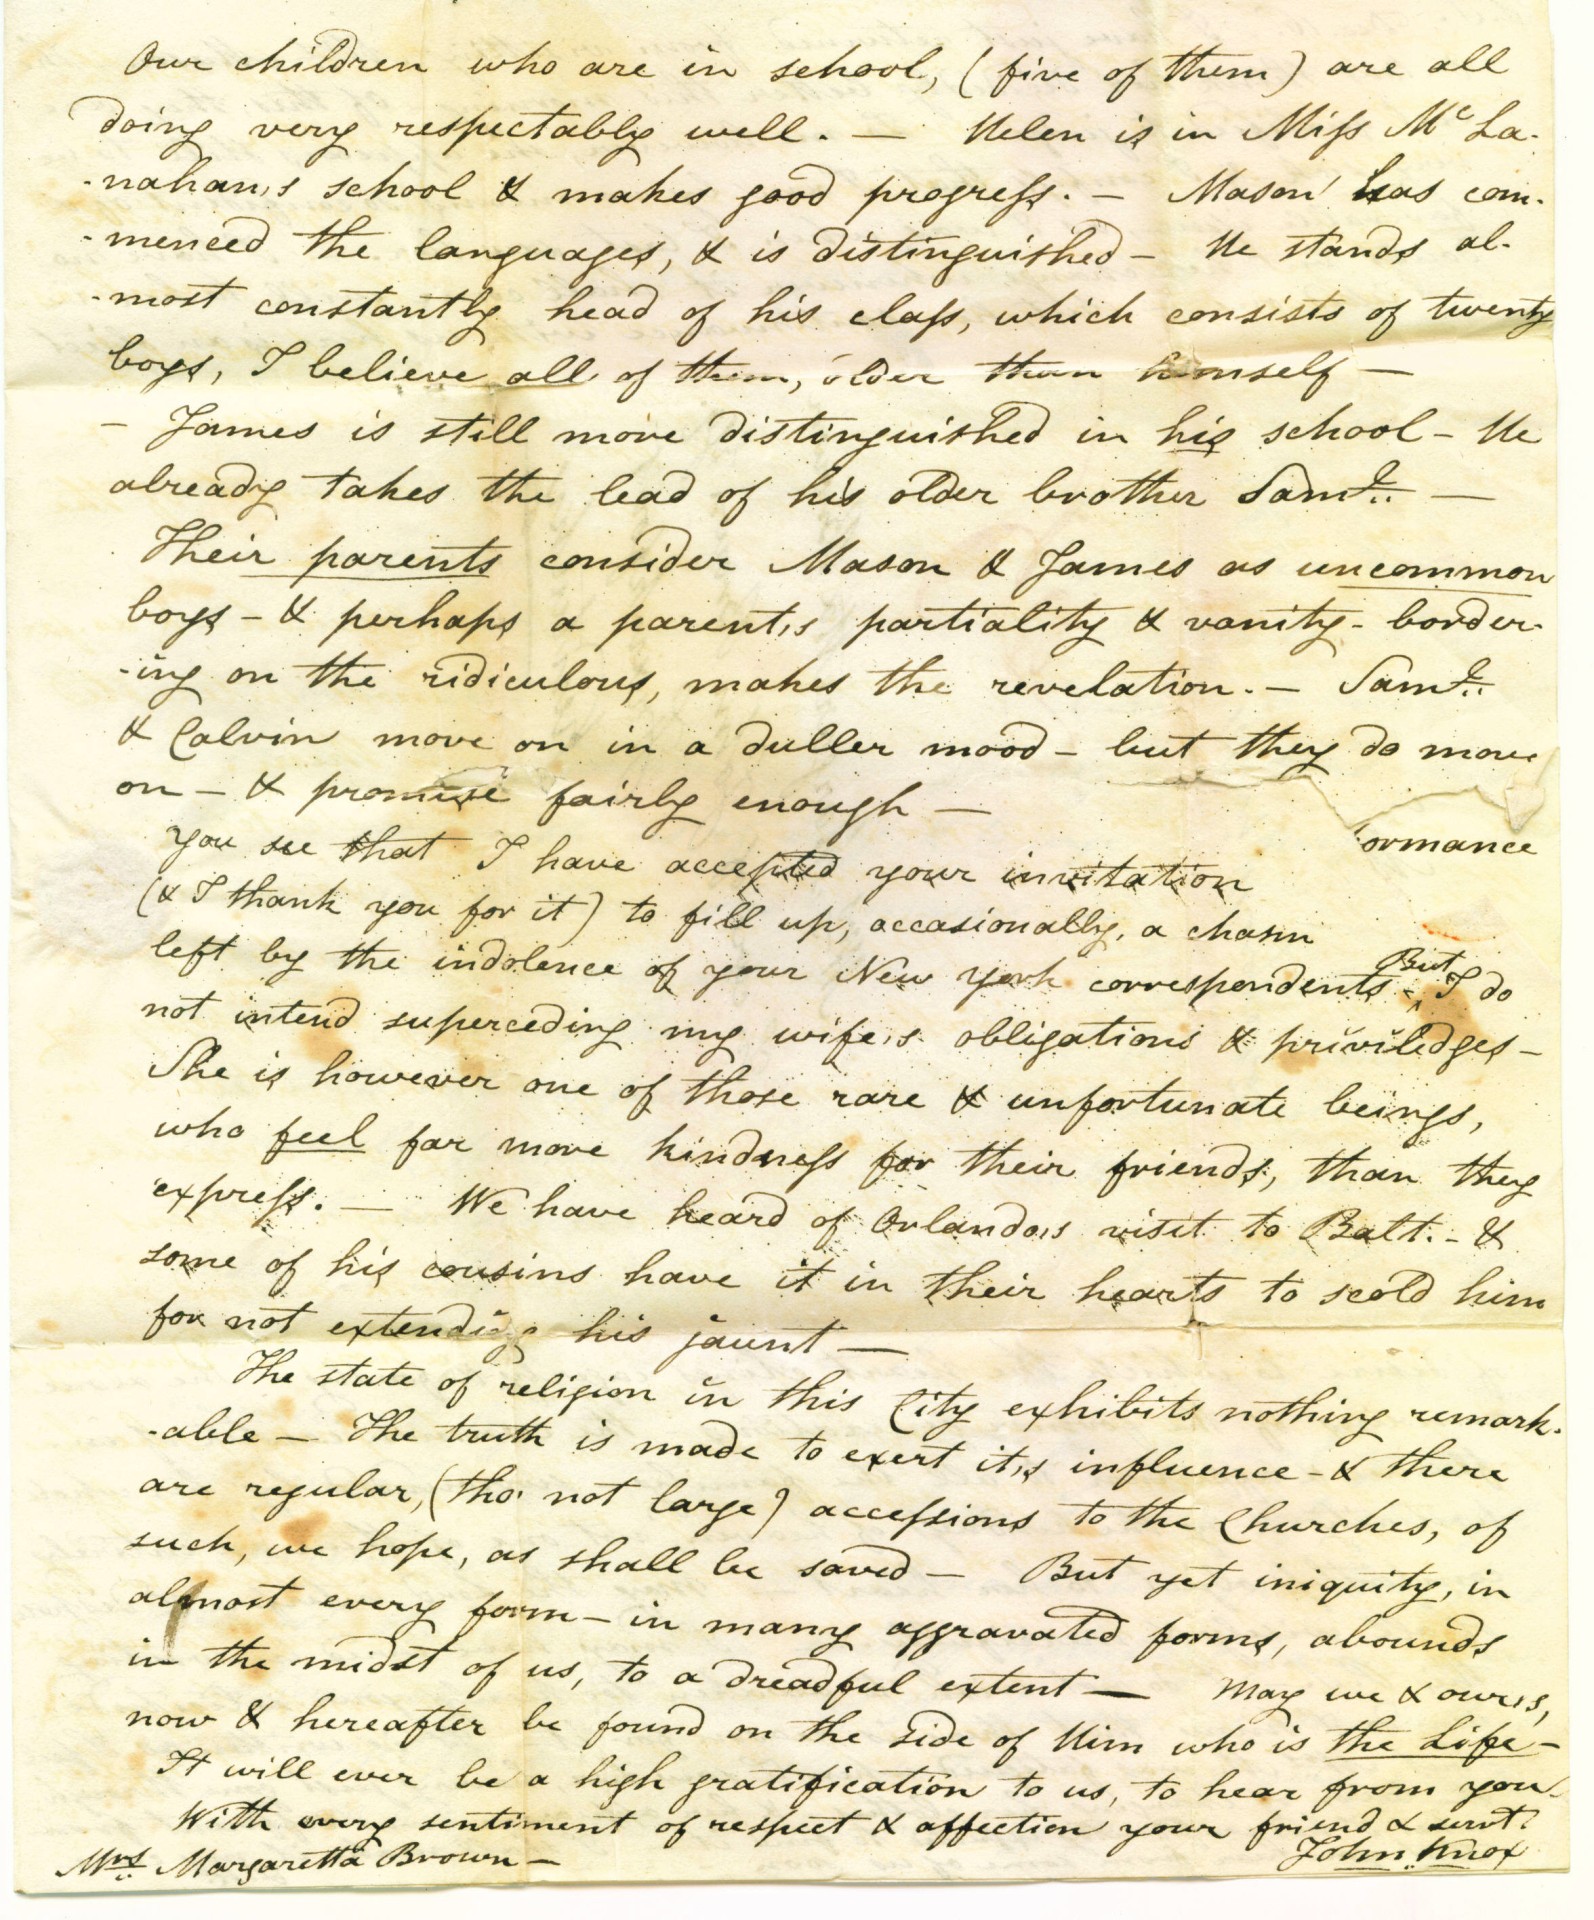 Our children who are in school, (five of them) are all
doing very respectably well. — Helen is in Miſs Mc La-
-nahan,s school & makes good progreſs. — Mason has com-
-menced the languages, & is distinguished — He stands al-
-most constantly head of his claſs, which consists of twenty
boys, I believe all of them, older than himself —
— James is still more distinguished in his school — He
already takes the lead of his older brother Saml. —
Their parents consider Mason & James as uncommon
boys — & perhaps a parent,s partiality & vanity - border-
-ing on the ridiculous, makes the revelation. — Saml.
& Calvin move on in a duller mood — but they do move
on — & promise fairly enough —
ormance
You see that I have accepted your invitation
(& I thank you for it) to fill up, occasionally, a chasm
left by the indolence of your New York correspondents - But I do
not intend superceding my wife,s obligations & priviledges —
She is however one of those rare & unfortunate beings,
who feel far more kindneſs for their friends, than they
expreſs. — We have heard of Orlando,s visit to Balt. - &
some of his cousins have it in their hearts to scold him
for not extending his jaunt —
The state of religion in this City exhibits nothing remark-
-able — The truth is made to exert it,s influence - & there
are regular, (tho' not large) acceſsions to the Churches, of
such, we hope, as shall be saved — But yet iniquity, in
almost every form — in many aggravated forms, abounds
in the midst of us, to a dreadful extent — May we & our,s,
now & hereafter be found on the side of Him who is the Life —
It will ever be a high gratification to us, to hear from you.
With every sentiment of respect & affection your friend & servt.
John Knox
Mrs. Margaretta Brown —